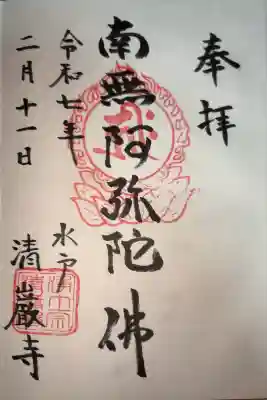 奉拝
南無阿弥陀佛
令和七年
二月十一日
水戸
清巌寺